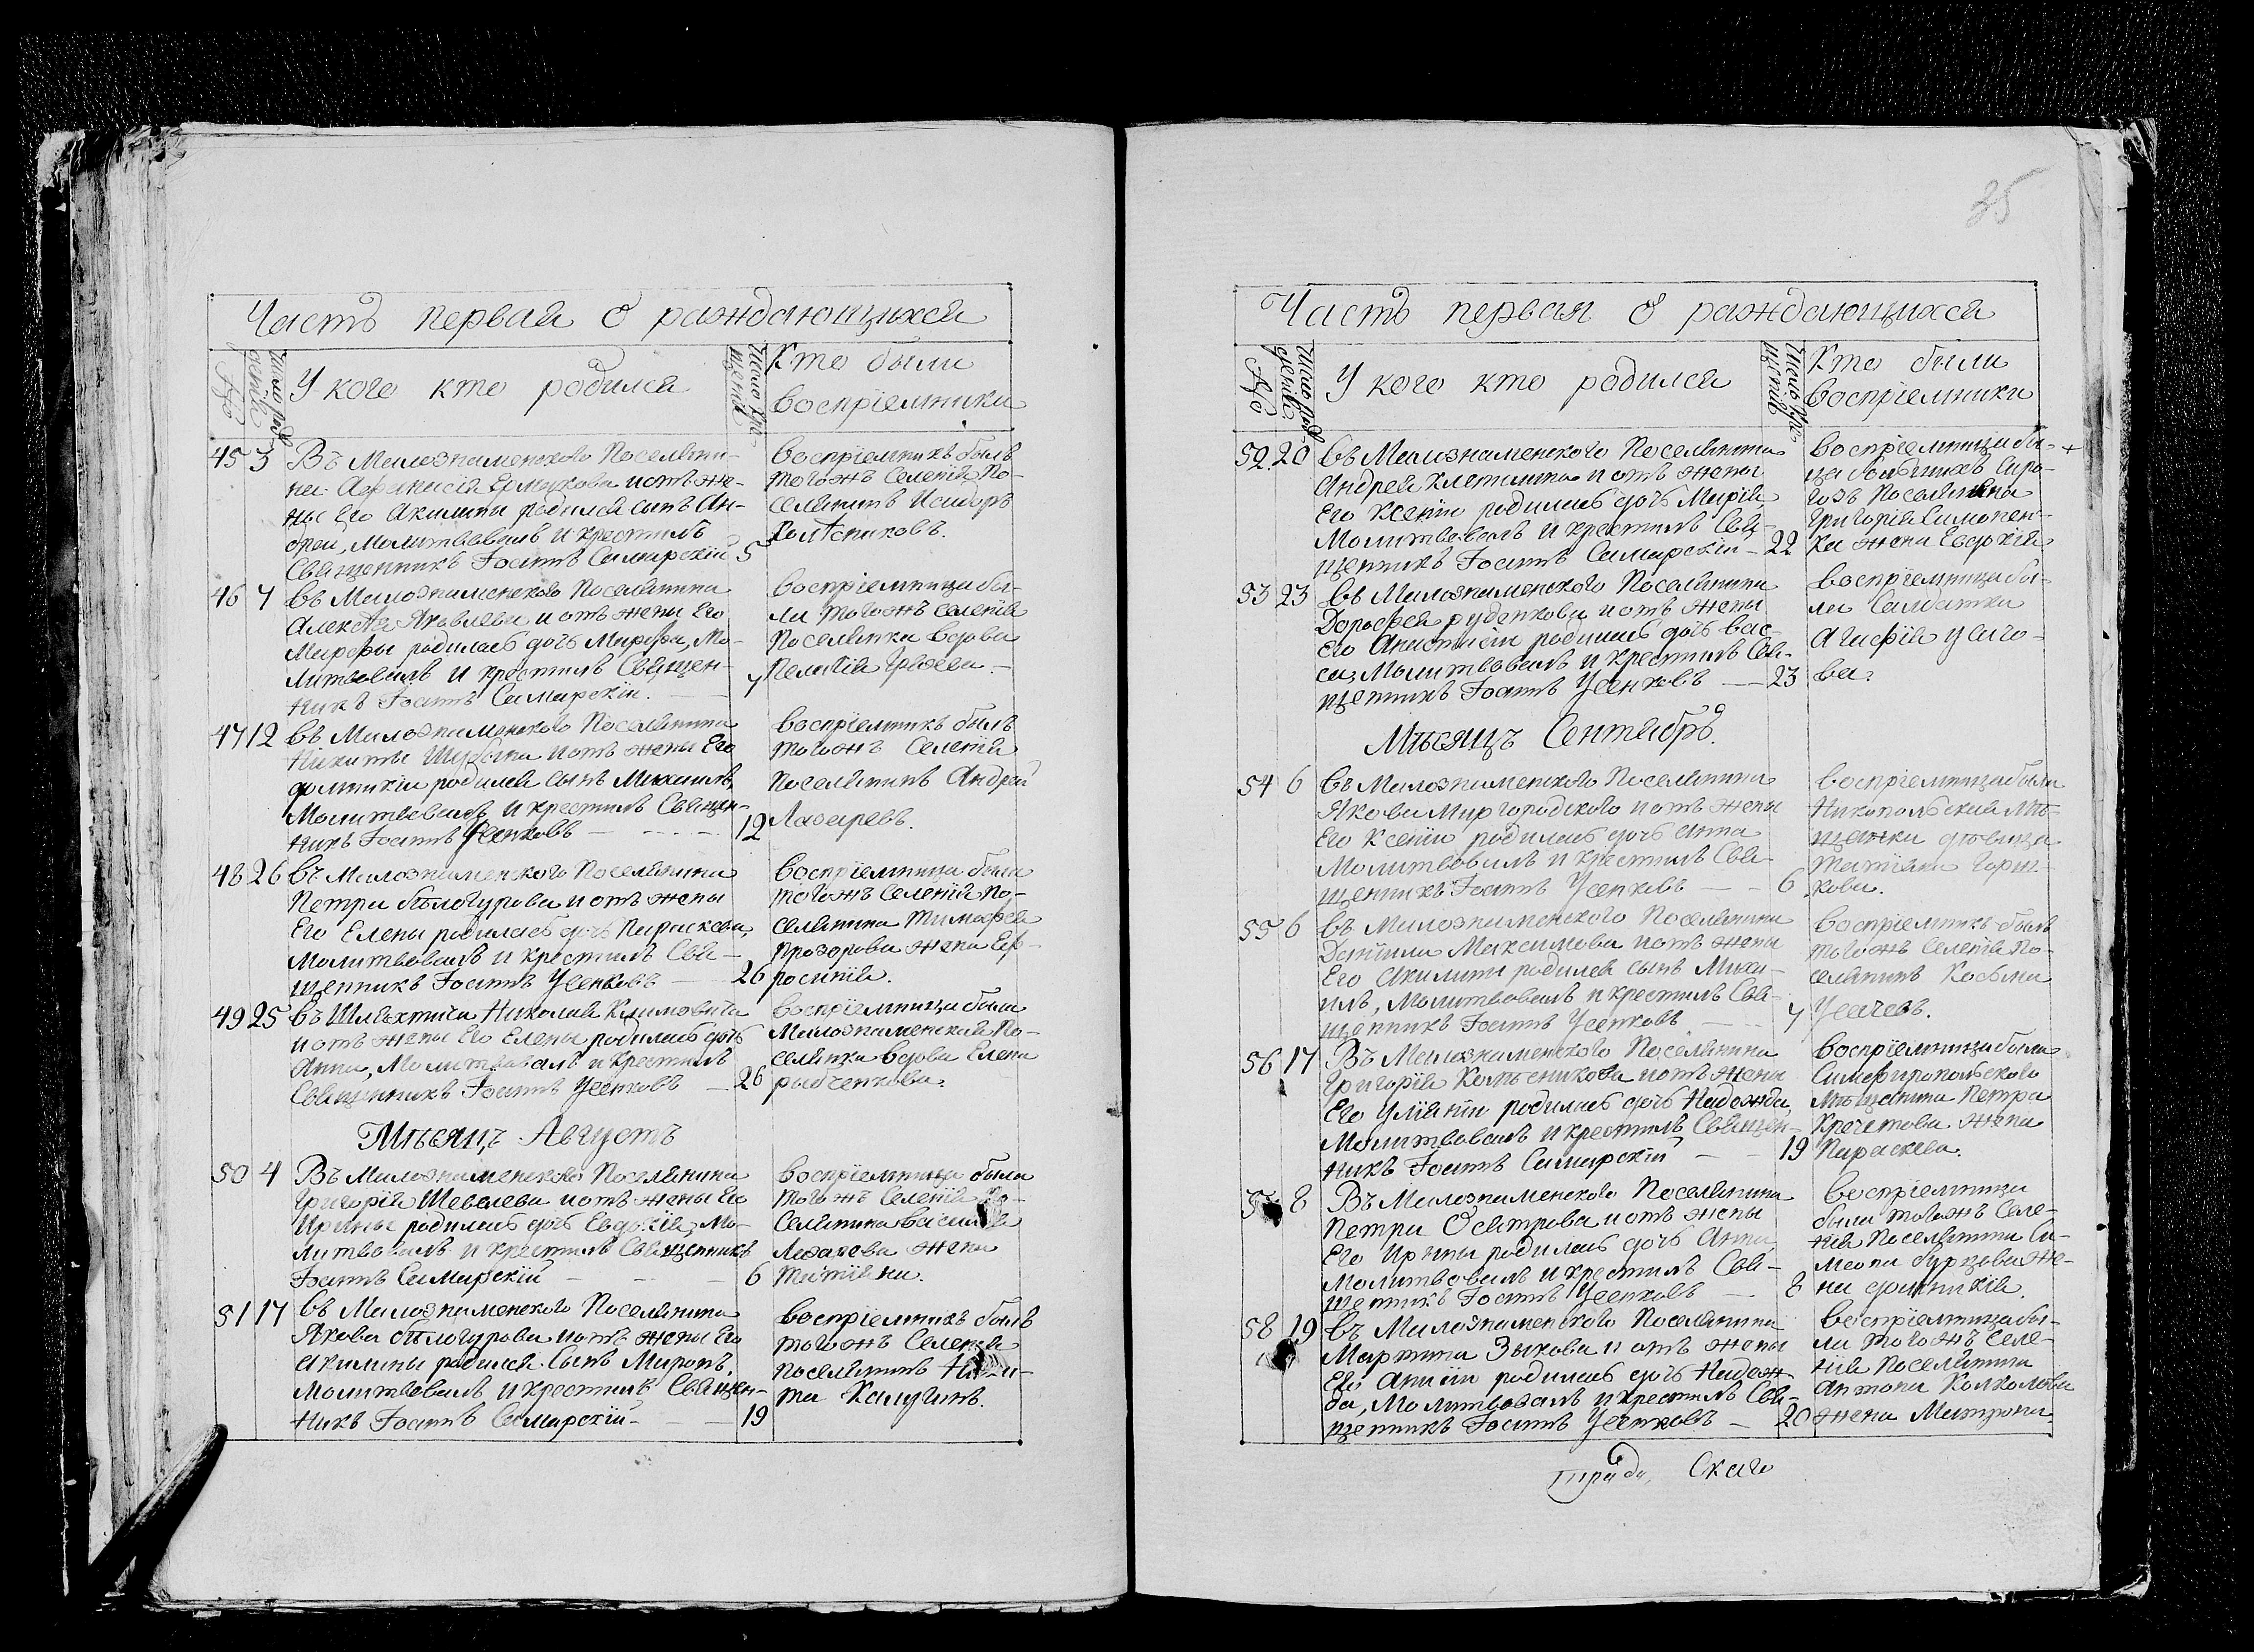 Часть первая о раждающихся
№
Число рож-
денія
У кого кто родился
Число кре-
щенія
Кто были
воспріемники
45 3 Въ Милознаменского Поселяни-
на Афанасія Ермакова и отъ же-
ны Его Акилины родился сынъ Ан-
дрей, Молитвовалъ и крестилъ
Священникъ Іоаннъ Самарскій 5
воспріемникъ былъ
тогожъ Селенія По-
селянинъ Исидоръ
Колѣсниковъ.
46 7 въ Милознаменского Поселянина
Алексѣя Яковлева и отъ жены Его
Марфы родилась дочь Марфа, Мо-
литвовалъ и крестилъ Священ-
никъ Іоаннъ Самарскій. 7
воспріемница бы-
ла тогожъ селенія
Поселянка вдова
Пелагія
47 12 въ Милознаменского Поселянина
Никиты и отъ жены Его
фотиніи родился сынъ Михаилъ,
Молитвовалъ и крестилъ Священ-
никъ Іоаннъ Усенковъ 12
воспріемникъ былъ
тогожъ Селенія
поселянинъ Андрей
Лазаревъ.
48 26 въ Милознаменского Поселянина
Петра бѣлогурова и отъ жены
Его Елены родилась дочь Параскева,
Молитвовалъ и крестилъ Свя-
щенникъ Іоаннъ Усенковъ 26
воспріемница была
тогожъ Селенія По-
селянина Тимофея
Прозорова жена Еф-
росинія.
49 25 въ Шляхтича Николая Климовича
и отъ жены Его Елены родилась дочь
Анна, Молитвовалъ и крестилъ
Священникъ Іоаннъ Усенковъ 26
воспріемница была
Милознаменская По-
селянка вдова Елена
рыбченкова.
Мѣсяцъ Августъ
50 4 Въ Милознаменского Поселянина
Григорія Шевелева и отъ жены Его
Ирины родилась дочь Евдокія, Мо-
литвовалъ и крестилъ Священникъ
Іоаннъ Самарскій 6
воспріемница была
тогожъ Селенія По-
селянина
Лазарева жена
Татіяна.
51 17 въ Милознаменского Поселянина
Якова бѣлогурова и отъ жены Его
Акилины родился Сынъ Миронъ,
Молитвовалъ и крестилъ Священ-
никъ Іоаннъ Самарскій 19
воспріемникъ былъ
тогожъ Селенія
поселянинъ Ники-
та Калугинъ.
35
Часть первая о раждающихся
№
Число рож-
денія
У кого кто родился
Число кре-
щенія
Кто были
воспріемники
52 20 въ Милознаменского Поселянина
Андрея клетина и отъ жены
Его Ксеніи родилась дочь Марія,
Молитвовалъ и крестилъ Свя-
щенникъ Іоаннъ Самарскій 22
воспріемница бы- +
ла Сиро-
гозъ Поселянина
Григорія Симонен-
ка жена Евдокія
53 23 въ Милознаменского Поселянина
Дорофея руденкова и отъ жены
Его Анастасіи родилась дочь вас-
са, Молитвовалъ и крестилъ Свя-
щенникъ Іоаннъ Усенковъ 23
воспріемница бы-
ла Салдатка
Агафія
ва.
Мѣсяцъ Сентябрь.
54 6 въ Милознаменского Поселянина
Якова Миргородского и отъ жены
Его Ксеніи родилась дочь Анна
Молитвовалъ и крестилъ Свя-
щенникъ Іоаннъ Усенковъ 6
воспріемница была
Никопольская Мѣ-
щанка дѣвица
Татіяна Горш-
кова.
55 6 въ Милознаменского Поселянина
Даніила Максимова и отъ жены
Его Акилины родился сынъ Миха-
илъ, Молитвовалъ и крестилъ Свя-
щенникъ Іоаннъ Усенковъ 7
воспріемникъ былъ
тогожъ Селенія По-
селянинъ Косьма
Усачевъ.
56 17 Въ Милознаменского Поселянина
Григорія Колѣсникова и отъ жены
Его Уліяніи родилась дочь Надежда,
Молитвовалъ и крестилъ Священ-
никъ Іоаннъ Самарскій 19
воспріемница была
Симферопольского
Мѣщанина Петра
Кречетова жена
Параскева.
57 8 Въ Милознаменского Поселянина
Петра Осятрова и отъ жены
Его Ирины родилась дочь Анна,
Молитвовалъ и крестилъ Свя-
щенникъ Іоаннъ Усенковъ 8
воспріемница
была тогожъ Селе-
нія Поселянина Си-
меона бурцова же-
на фотинія.
58 19 въ Милознаменского Поселянина
Мартина Зыкова и отъ жены
Его Анисіи родилась дочь Надеж-
да, Молитвовалъ и крестилъ Свя-
щенникъ Іоаннъ Усенковъ 20
воспріемница бы-
ла тогожъ Селе-
нія Поселянина
Антона Колколова
жена Матрона.
града, Скаго